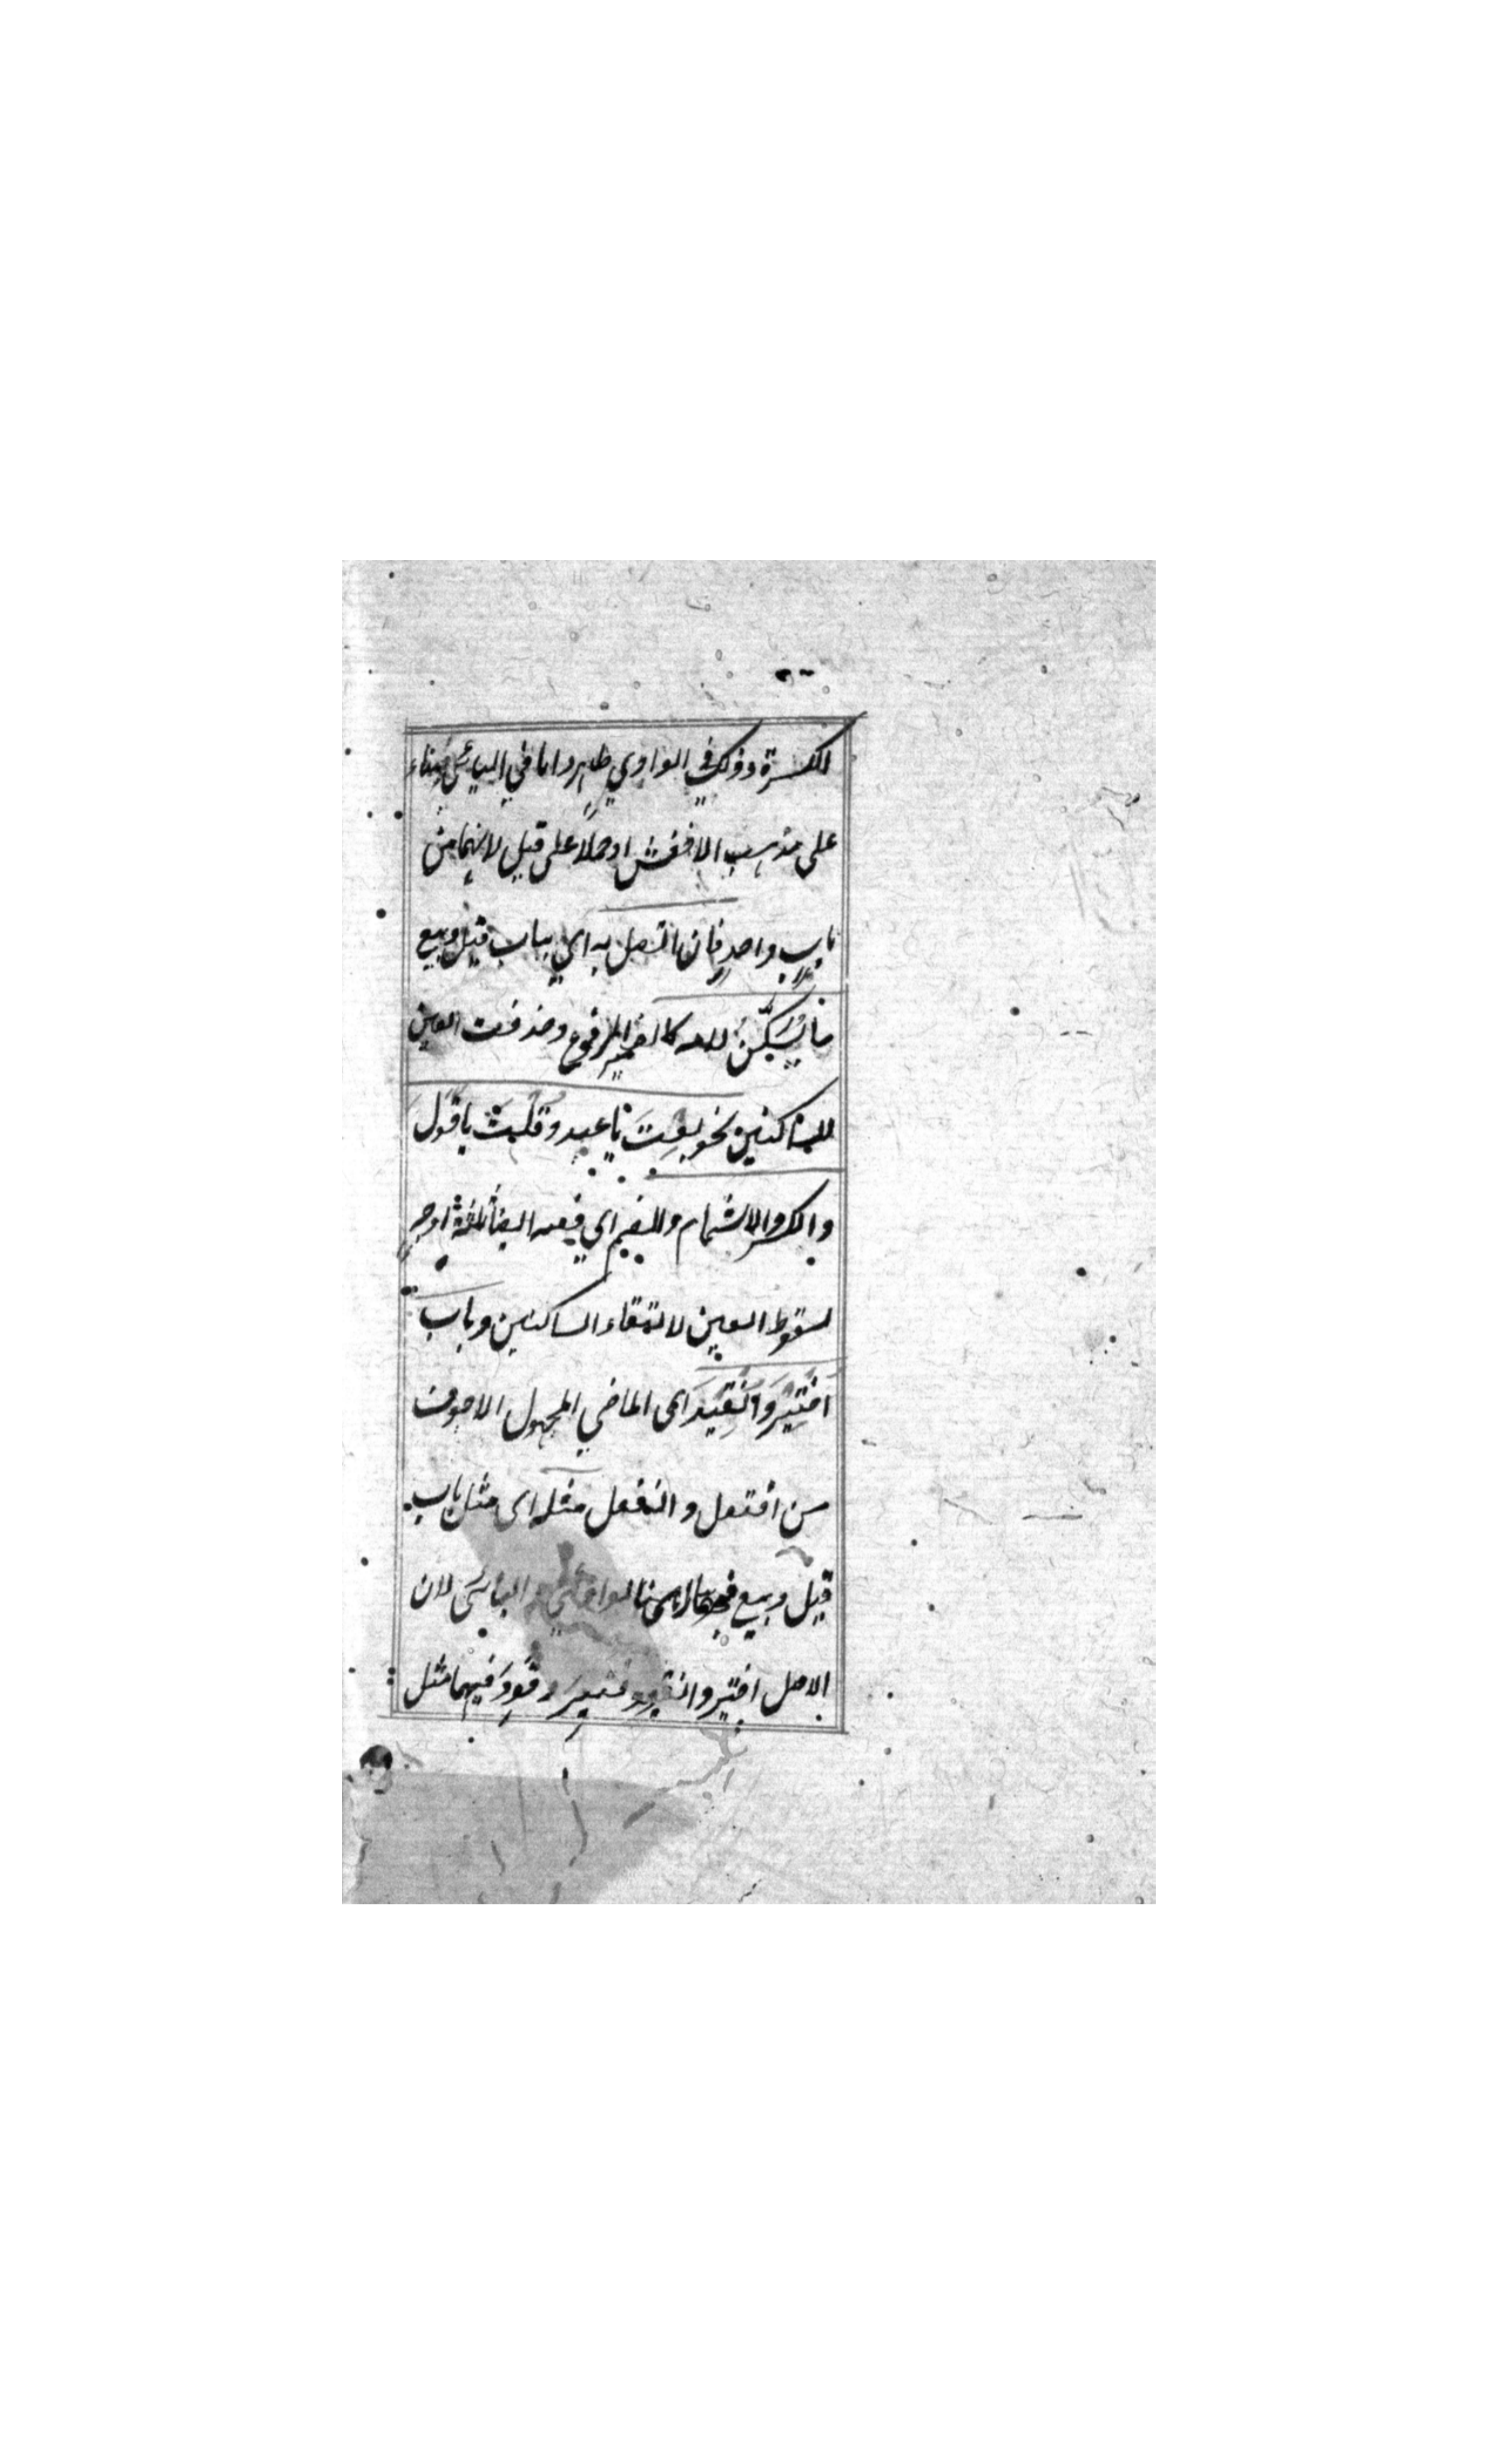 للكسرة وذلك في الواوي ظاهر واما في اليائي فبناء
على مذهب الاخفش او حملا على قيل لانهما من
باب واحد فان اتصل به اي بباب قيل وبيع
ما يُسَكِّنُ لامه كالضمير المرفوع وحذفت العين
للساكنين نحو بِعتَ يا عبد وقلت يا قول
والكسر والاشمام والضم اي فيه ايضا ثلثة اوجه
لسقوط العين لالتقاء الساكنين وباب
اختير وانقيد اي الماضي المجهول الاجوف
من افتعل وانفعل مثله اي مثل باب
قيل وبيع اليائي لان
الاصل اختير وانقود فتير وقود فيهما مثل